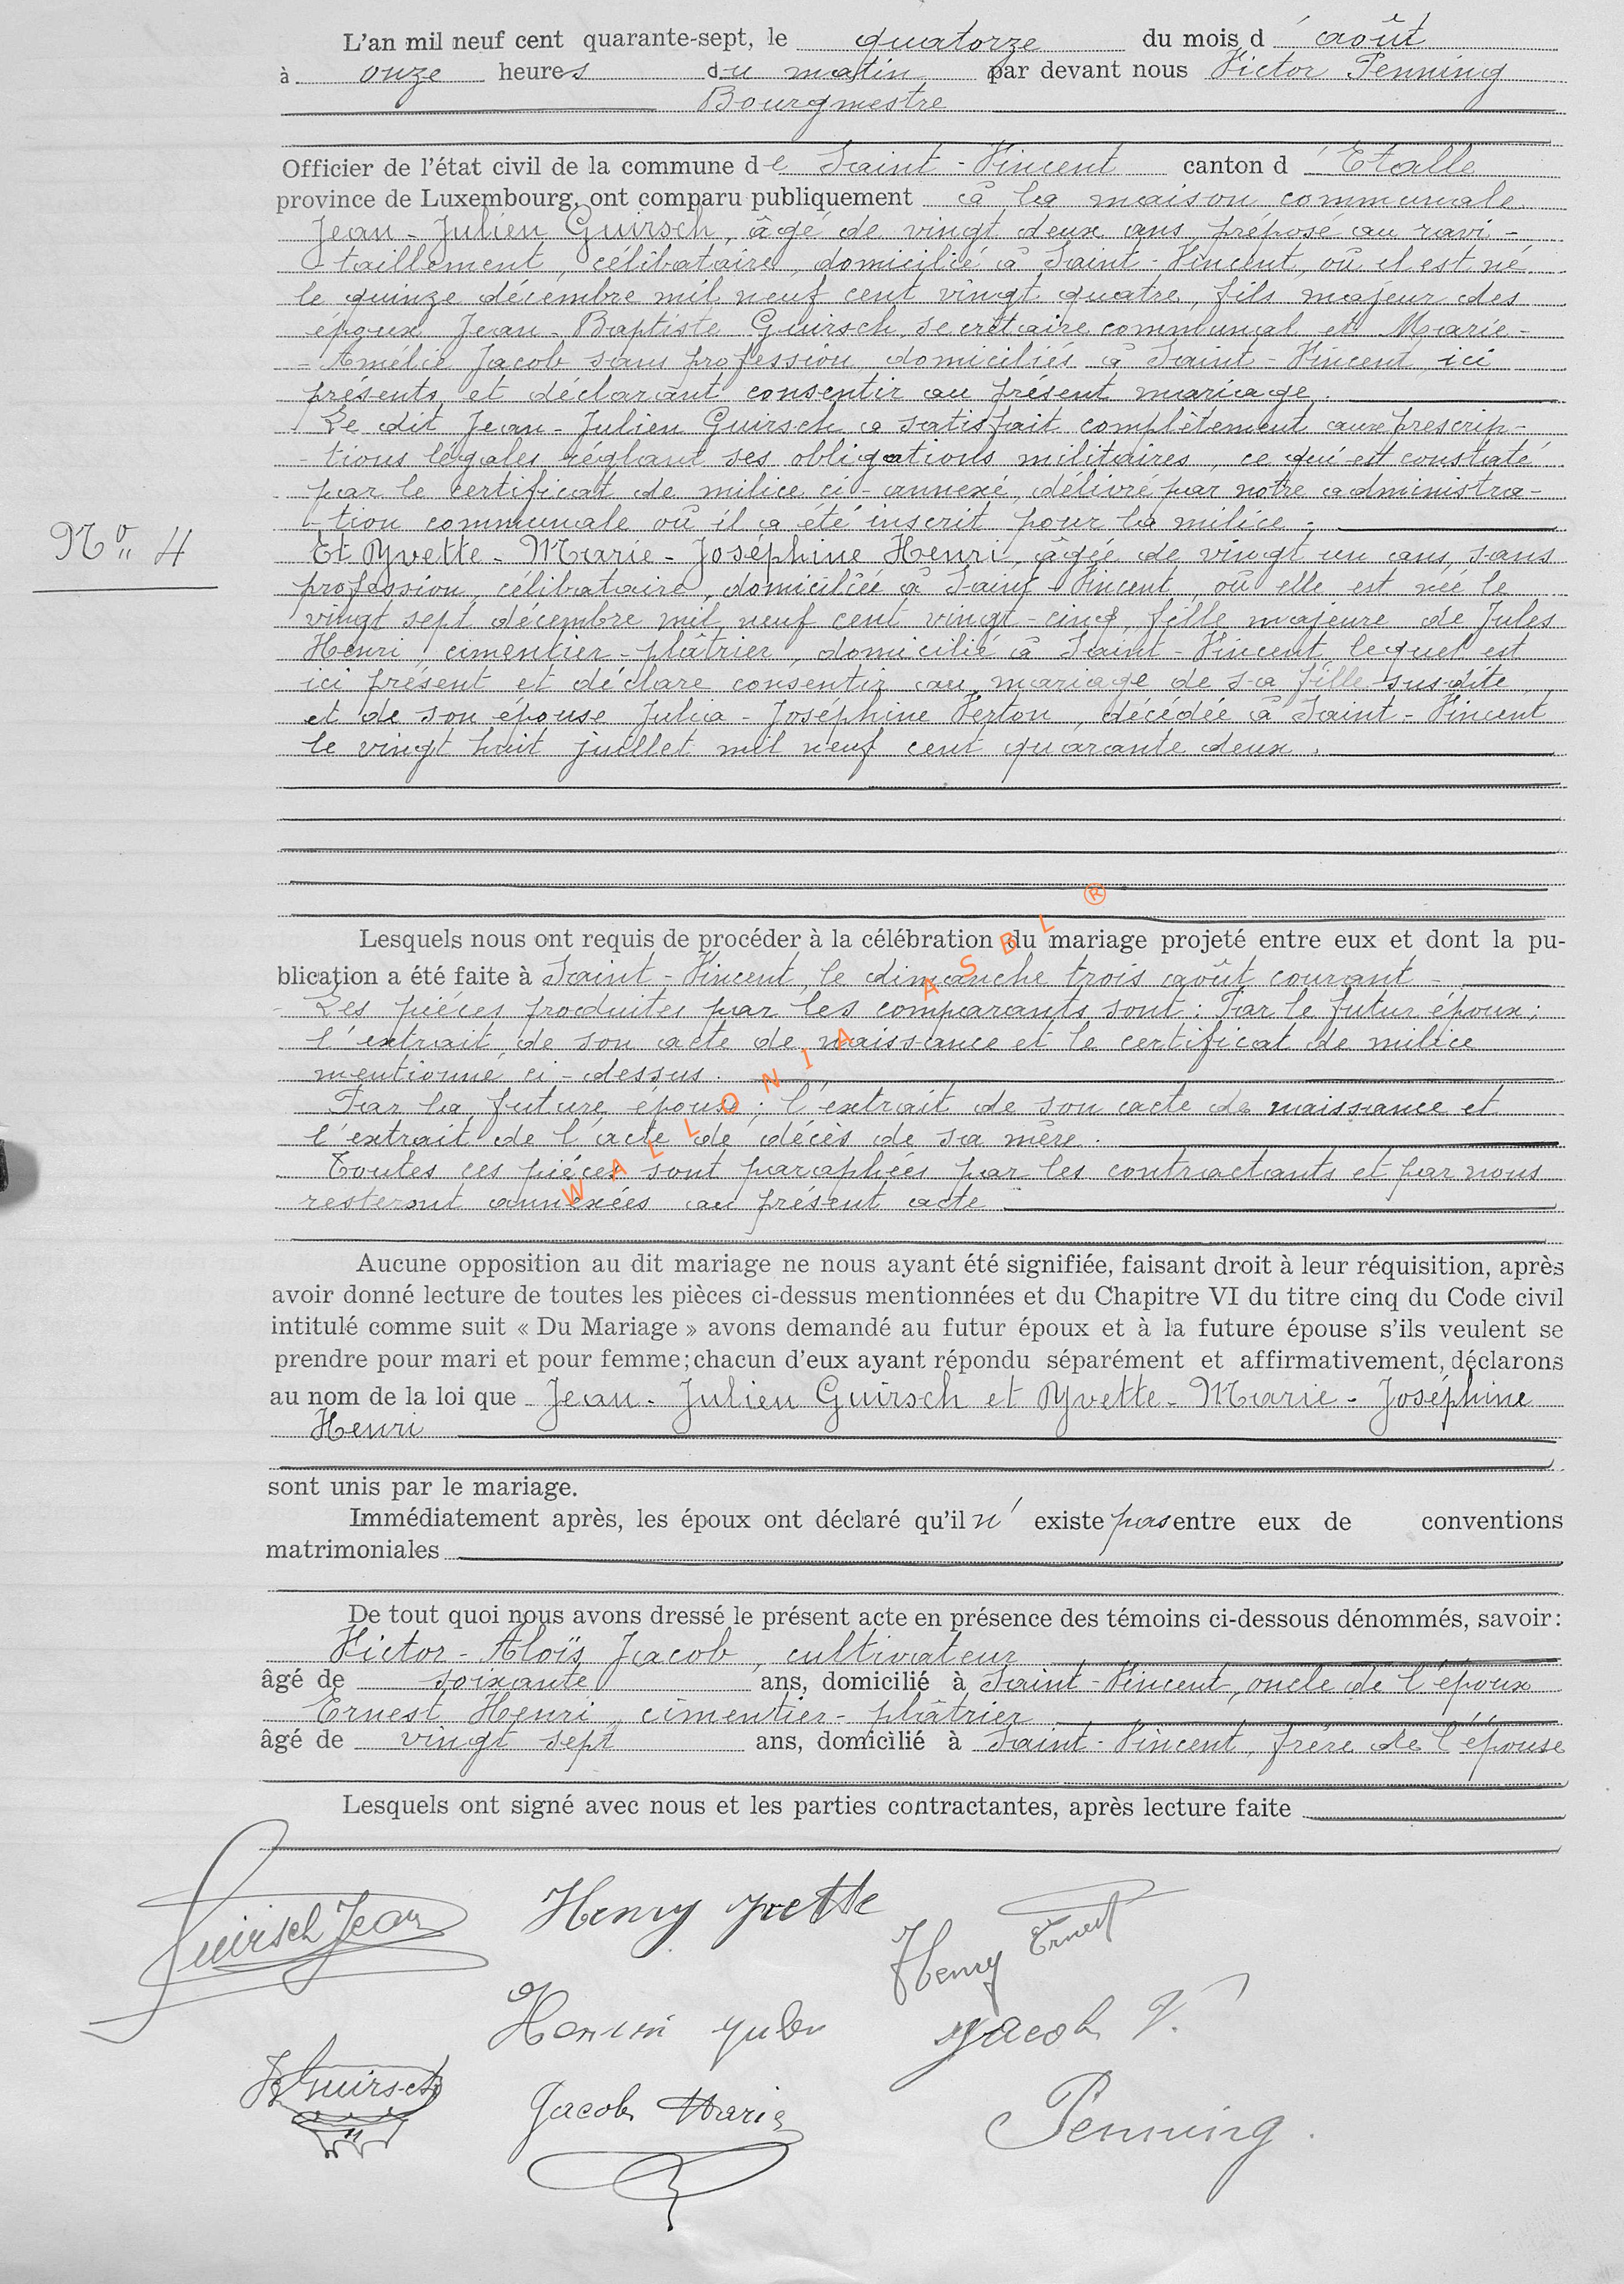 L'an mil neuf cent quarante-sept, le quatorze du mois d'août
à onze heures du matin par devant nous Victor Penning
Bourgmestre
Officier de l'état civil de la commune de Saint-Vincent canton d'Etalle
province de Luxembourg, ont comparu publiquement à la maison communale
Jean-Julien Guirsch, âgé de vingt deux ans, préposé au ravi-
-taillement, célibataire, domicilié à Saint-Vincent, où il est né
le quinze décembre mil neuf cent vingt quatre, fils majeur des
époux Jean-Baptiste Guirsch, secrétaire communal et Marie-
-Amélie Jacob sans profession, domiciliés à Saint-Vincent, ici
présents et déclarant consentir au présent mariage.
Le dit Jean-Julien Guirsch a satisfait complètement aux prescrip-
-tions légales réglant ses obligations militaires, ce qui est constaté
par le certificat de milice ci-annexé, délivré par notre administra-
-tion communale où il a été inscrit pour la milice.
No 4
Et Yvette-Marie-Joséphine Henri, âgée de vingt un ans, sans
profession, célibataire, domiciliée à Saint-Vincent, où elle est née le
vingt sept décembre mil neuf cent vingt-cinq, fille majeure de Jules
Henri, cimentier-plâtrier, domicilié à Saint-Vincent, lequel est
ici présent et déclare consentir au mariage de sa fille susdite,
et de son épouse Julia-Joséphine Verton, décédée à Saint-Vincent
le vingt huit juillet mil neuf cent quarante deux.
Lesquels nous ont requis de procéder à la célébration du mariage projeté entre eux et dont la pu-
blication a été faite à Saint-Vincent, le dimanche trois août courant.
Les pièces produites par les comparants sont: Par le futur époux:
l'extrait de son acte de naissance et le certificat de milice
mentionné ci-dessus.
Par la future épouse: l'extrait de son acte de naissance et
l'extrait de l'acte de décès de sa mère.
Toutes ces pièces sont paraphées par les contractants et par nous
resteront annexées au présent acte
WALLONIA ASBL ®
Aucune opposition au dit mariage ne nous ayant été signifiée, faisant droit à leur réquisition, après
avoir donné lecture de toutes les pièces ci-dessus mentionnées et du Chapitre VI du titre cinq du Code civil
intitulé comme suit « Du Mariage » avons demandé au futur époux et à la future épouse s'ils veulent se
prendre pour mari et pour femme; chacun d'eux ayant répondu séparément et affirmativement, déclarons
au nom de la loi que Jean-Julien Guirsch et Yvette-Marie-Joséphine
Henri
sont unis par le mariage.
Immédiatement après, les époux ont déclaré qu'il n'existe pas entre eux de conventions
matrimoniales
De tout quoi nous avons dressé le présent acte en présence des témoins ci-dessous dénommés, savoir:
Victor-Aloïs Jacob, cultivateur
âgé de soixante ans, domicilié à Saint-Vincent, oncle de l'époux
Ernest Henri, cimentier-plâtrier
âgé de vingt sept ans, domicilié à Saint-Vincent, frère de l'épouse
Lesquels ont signé avec nous et les parties contractantes, après lecture faite
Guirsch Jean Henry Yvette Henry Ernest
Jacob V.
Guirsch Jacob Marie Penning